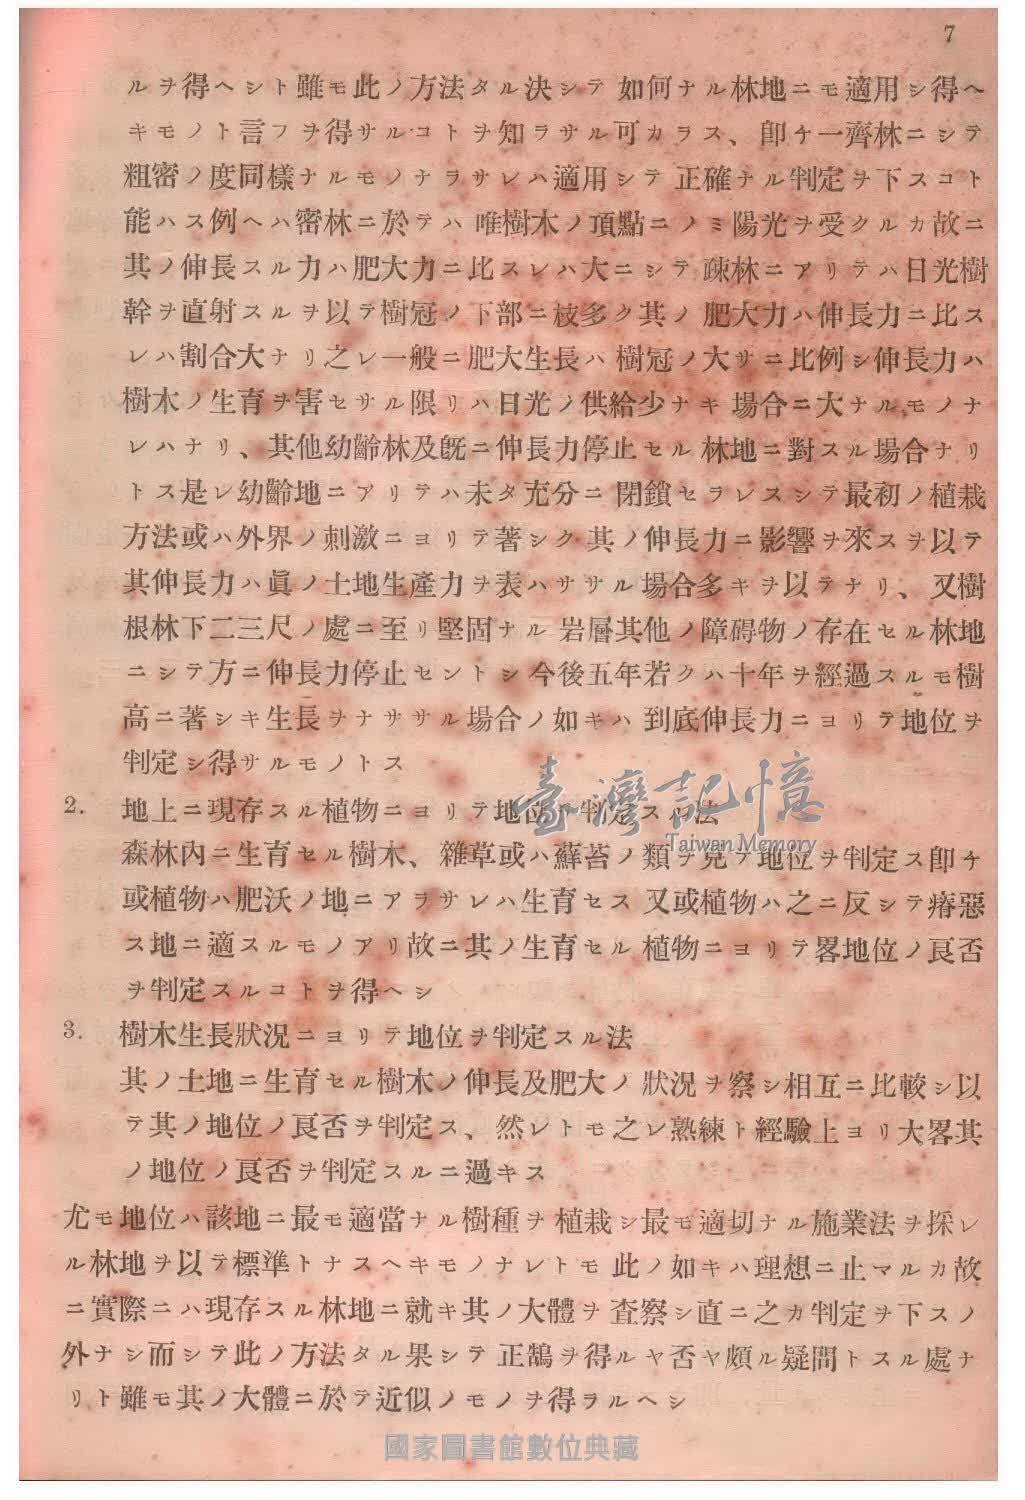 7
ルヲ得ヘシト雖モ此ノ方法タル決シテ如何ナル林地ニモ適用シ得ヘ
キモノト言フヲ得サルコトヲ知ラサル可カラス、卽チ一齊林ニシテ
粗密ノ度同樣ナルモノナラサレハ適用シテ正確ナル判定ヲ下スコト
能ハス例ヘハ密林ニ於テハ唯樹木ノ頂點ニノミ陽光ヲ受クルカ故ニ
其ノ伸長スル力ハ肥大力ニ比スレハ大ニシテ疎林ニアリテハ日光樹
幹ヲ直射スルヲ以テ樹冠ノ下部ニ枝多ク其ノ肥大力ハ伸長力ニ比ス
レハ割合大ナリ之レ一般ニ肥大生長ハ樹冠ノ大サニ比例シ伸長力ハ
樹木ノ生育ヲ害セサル限リハ日光ノ供給少ナキ場合ニ大ナルモノナ
レハナリ、其他幼齡林及旣ニ伸長力停止セル林地ニ對スル場合ナリ
トス是レ幼齡地ニアリテハ未タ充分ニ閉鎖セラレスシテ最初ノ植栽
方法或ハ外界ノ刺激ニヨリテ著シク其ノ伸長力ニ影響ヲ來スヲ以テ
其伸長力ハ眞ノ土地生產力ヲ表ハササル場合多キヲ以テナリ、又樹
根林下二三尺ノ處ニ至リ堅固ナル岩層其他ノ障碍物ノ存在セル林地
ニシテ方ニ伸長力停止セントシ今後五年若クハ十年ヲ經過スルモ樹
高ニ著シキ生長ヲナササル場合ノ如キハ到底伸長力ニヨリテ地位ヲ
判定シ得サルモノトス
2. 地上ニ現存スル植物ニヨリテ地位ヲ判定スル法
森林內ニ生育セル樹木、雜草或ハ蘇苔ノ類ヲ見テ地位ヲ判定ス卽チ
或植物ハ肥沃ノ地ニアラサレハ生育セス又或植物ハ之ニ反シテ瘠惡
ス地ニ適スルモノアリ故ニ其ノ生育セル植物ニヨリテ畧地位ノ良否
ヲ判定スルコトヲ得ヘシ
3. 樹木生長狀況ニヨリテ地位ヲ判定スル法
其ノ土地ニ生育セル樹木ノ伸長及肥大ノ狀況ヲ察シ相互ニ比較シ以
テ其ノ地位ノ良否ヲ判定ス、然レトモ之レ熟練ト經驗上ヨリ大畧其
ノ地位ノ良否ヲ判定スルニ過キス
尤モ地位ハ該地ニ最モ適當ナル樹種ヲ植栽シ最モ適切ナル施業法ヲ採レ
ル林地ヲ以テ標準トナスヘキモノナレトモ此ノ如キハ理想ニ止マルカ故
ニ實際ニハ現存スル林地ニ就キ其ノ大體ヲ査察シ直ニ之カ判定ヲ下スノ
外ナシ而シテ此ノ方法タル果シテ正鵠ヲ得ルヤ否ヤ頗ル疑問トスル處ナ
リト雖モ其ノ大體ニ於テ近似ノモノヲ得ラルヘシ
臺灣記憶
Taiwan Memory
國家圖書館數位典藏